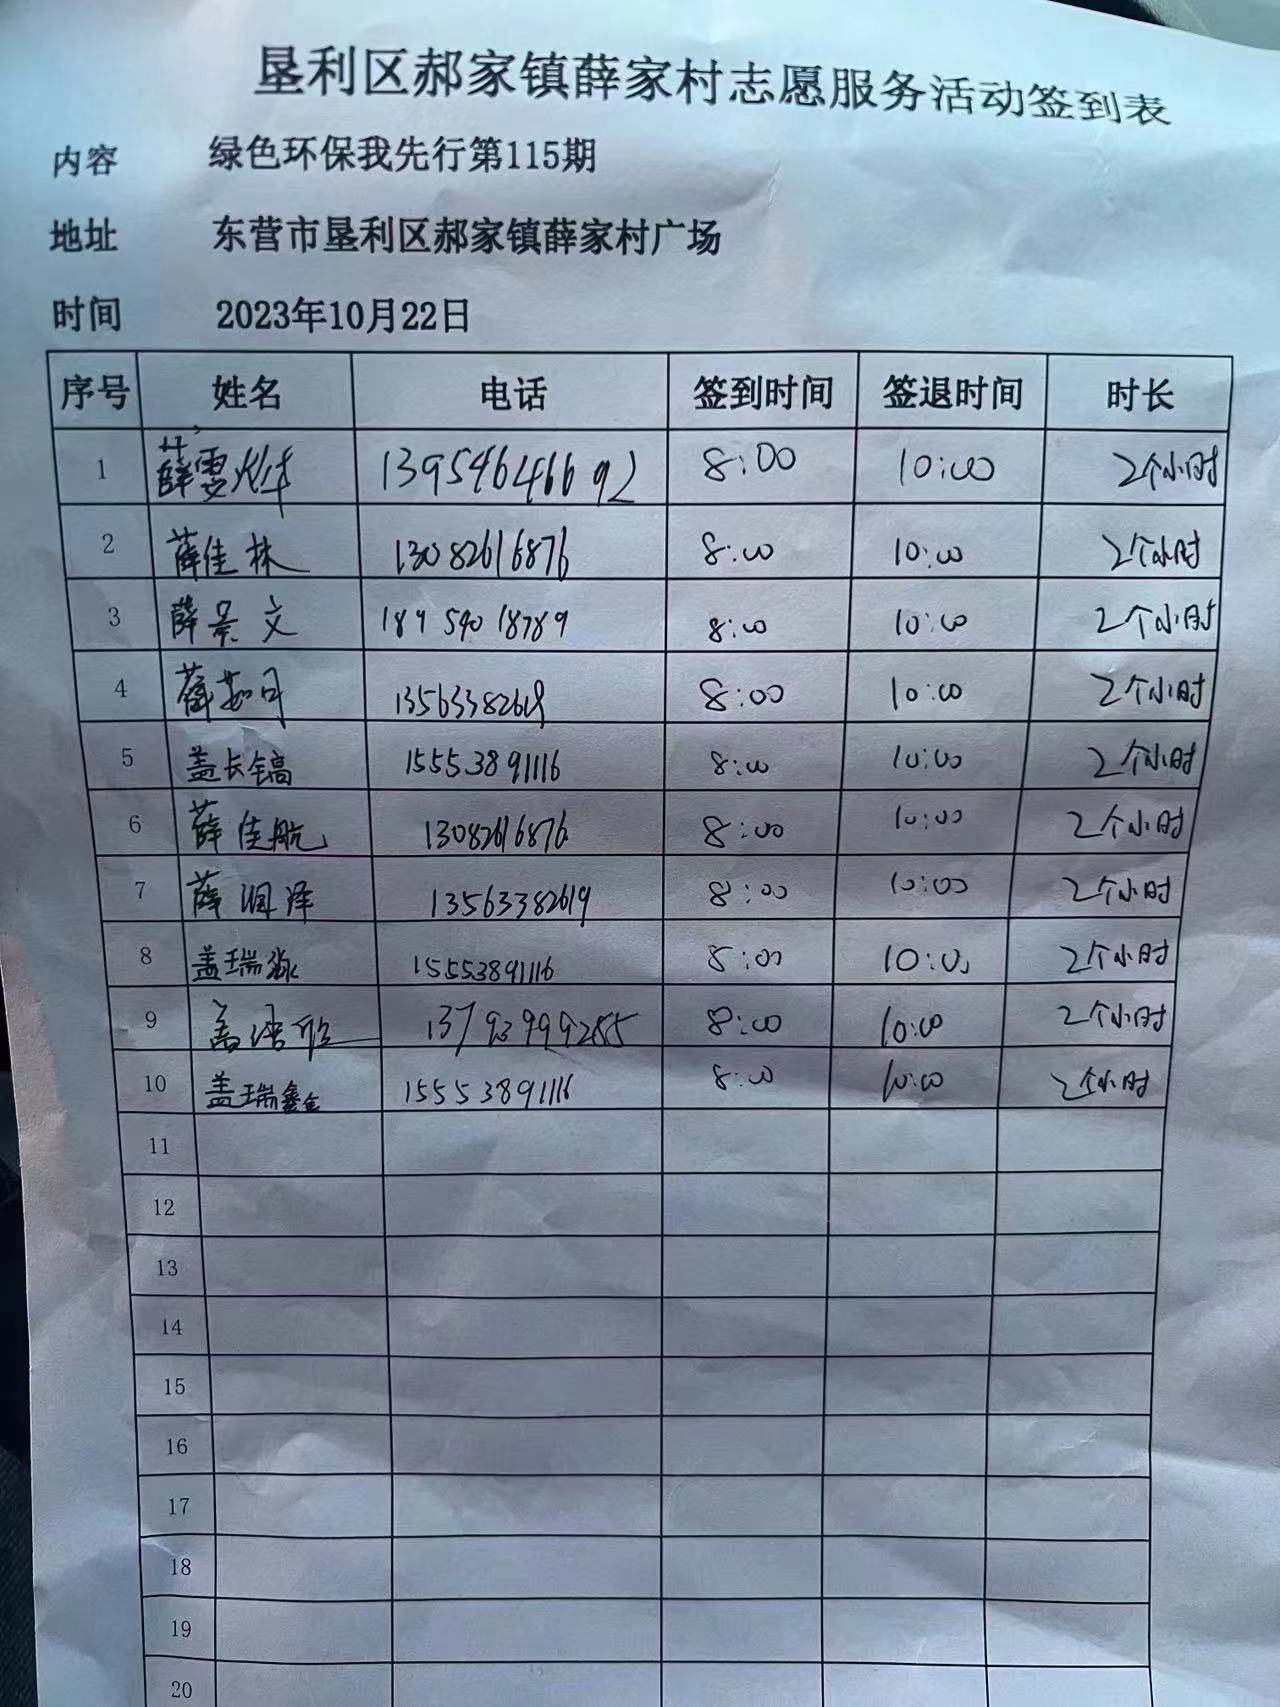 垦利区郝家镇薛家村志愿服务活动签到表
内容 绿色环保我先行第115期
地址 东营市垦利区郝家镇薛家村广场
时间 2023年10月22日
序号 姓名 电话 签到时间 签退时间 时长
1 薛雯烨 13954646692 8:00 10:00 2个小时
2 薛佳林 13082616876 8:00 10:00 2个小时
3 薛景文 18954018789 8:00 10:00 2个小时
4 薛茹月 13563382619 8:00 10:00 2个小时
5 盖长镐 15553891116 8:00 10:00 2个小时
6 薛佳航 13082616876 8:00 10:00 2个小时
7 薛润泽 13563382619 8:00 10:00 2个小时
8 盖瑞淼 15553891116 8:00 10:00 2个小时
9 盖浩欣 13793999255 8:00 10:00 2个小时
10 盖瑞鑫 15553891116 8:00 10:00 2个小时
11
12
13
14
15
16
17
18
19
20